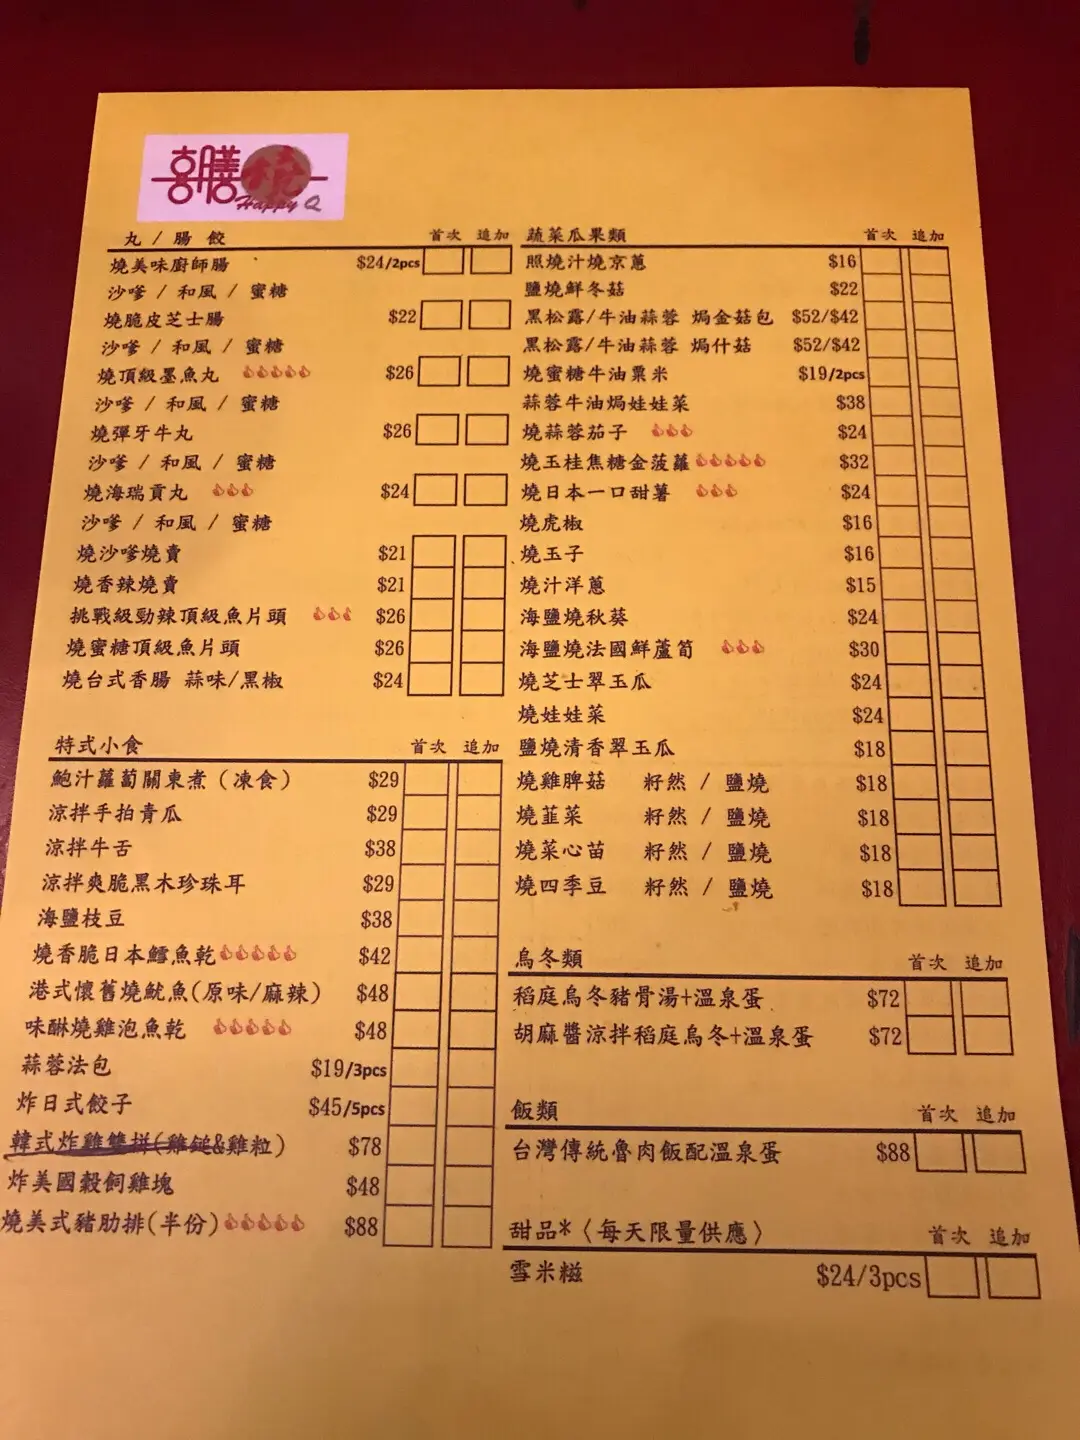 喜膳燒
Happy Q
丸 / 腸 餃 首次 追加
燒美味廚師腸 $24/2pcs
沙嗲 / 和風 / 蜜糖
燒脆皮芝士腸 $22
沙嗲 / 和風 / 蜜糖
燒頂級墨魚丸 $26
沙嗲 / 和風 / 蜜糖
燒彈牙牛丸 $26
沙嗲 / 和風 / 蜜糖
燒海瑞貢丸 $24
沙嗲 / 和風 / 蜜糖
燒沙嗲燒賣 $21
燒香辣燒賣 $21
挑戰級勁辣頂級魚片頭 $26
燒蜜糖頂級魚片頭 $26
燒台式香腸 蒜味/黑椒 $24
特式小食 首次 追加
鮑汁蘿蔔關東煮（凍食） $29
涼拌手拍青瓜 $29
涼拌牛舌 $38
涼拌爽脆黑木珍珠耳 $29
海鹽枝豆 $38
燒香脆日本鱈魚乾 $42
港式懷舊燒魷魚(原味/麻辣) $48
味醂燒雞泡魚乾 $48
蒜蓉法包 $19/3pcs
炸日式餃子 $45/5pcs
韓式炸雞雙拼(雞鎚&雞粒) $78
炸美國穀飼雞塊 $48
燒美式豬肋排(半份) $88
蔬菜瓜果類 首次 追加
照燒汁燒京蔥 $16
鹽燒鮮冬菇 $22
黑松露/牛油蒜蓉 焗金菇包 $52/$42
黑松露/牛油蒜蓉 焗什菇 $52/$42
燒蜜糖牛油粟米 $19/2pcs
蒜蓉牛油焗娃娃菜 $38
燒蒜蓉茄子 $24
燒玉桂焦糖金菠蘿 $32
燒日本一口甜薯 $24
燒虎椒 $16
燒玉子 $16
燒汁洋蔥 $15
海鹽燒秋葵 $24
海鹽燒法國鮮蘆筍 $30
燒芝士翠玉瓜 $24
燒娃娃菜 $24
鹽燒清香翠玉瓜 $18
燒雞脾菇 籽然 / 鹽燒 $18
燒韮菜 籽然 / 鹽燒 $18
燒菜心苗 籽然 / 鹽燒 $18
燒四季豆 籽然 / 鹽燒 $18
烏冬類 首次 追加
稻庭烏冬豬骨湯+溫泉蛋 $72
胡麻醬涼拌稻庭烏冬+溫泉蛋 $72
飯類 首次 追加
台灣傳統魯肉飯配溫泉蛋 $88
甜品*〈每天限量供應〉 首次 追加
雪米糍 $24/3pcs